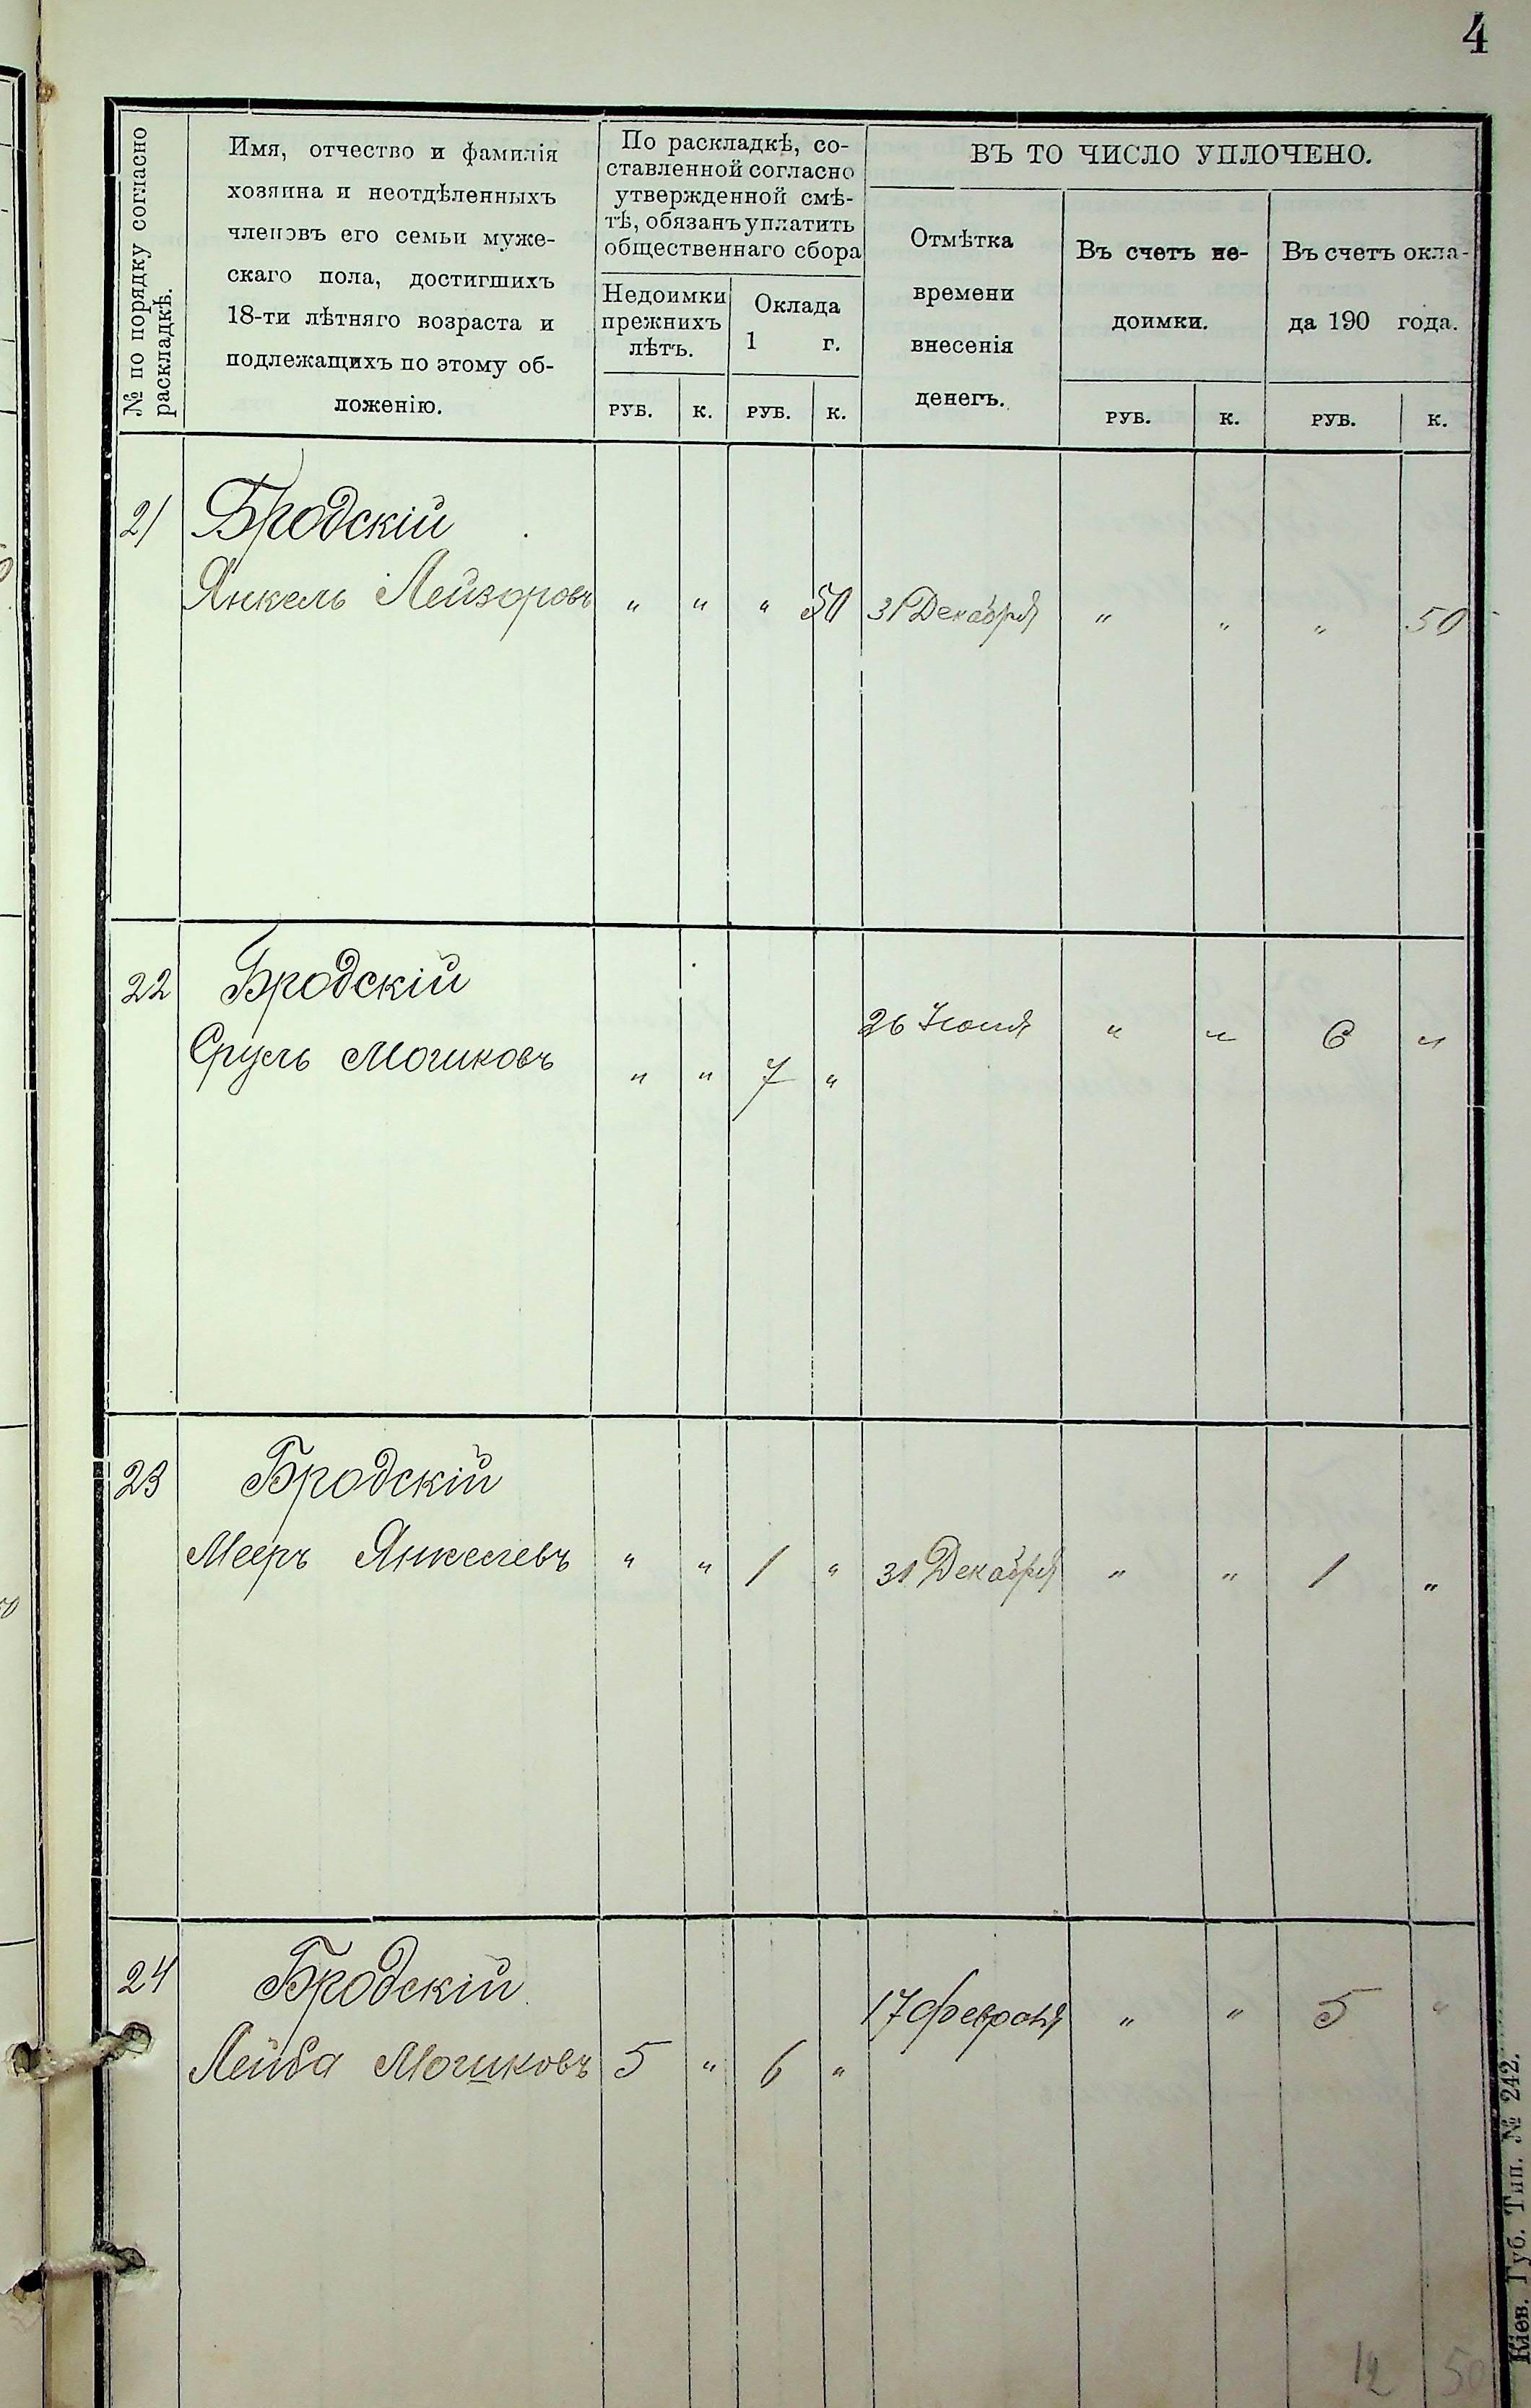 4
№ по порядку согласно
раскладкѣ.
Имя, отчество и фамилія
хозяина и неотдѣленныхъ
членовъ его семьи муже-
скаго пола, достигшихъ
18-ти лѣтняго возраста и
подлежащихъ по этому об-
ложенію.
По раскладкѣ, со-
ставленной согласно
утвержденной смѣ-
тѣ, обязанъ уплатить
общественнаго сбора
Недоимки
прежнихъ
лѣтъ.
Оклада
1 г.
ВЪ ТО ЧИСЛО УПЛОЧЕНО.
Отмѣтка
времени
внесенія
денегъ.
Въ счетъ не-
доимки.
Въ счетъ окла-
да 190 года.
РУБ. К. РУБ. К. РУБ. К. РУБ. К.
21 Бродскій
Янкель Лейзоровъ " " " 50 31 Декабря " " " 50
22 Бродскій
26 Іюня " " 6 "
Сруль Мошковъ " " 7 "
23 Бродскій
Мееръ Янкелевъ " " 1 " 31 Декабря " " 1 "
24 Бродскій
17 Февраля " " 5 "
Лейба Мошковъ 5 " 6 "
12 50
Кіев. Губ. Тип. № 242.